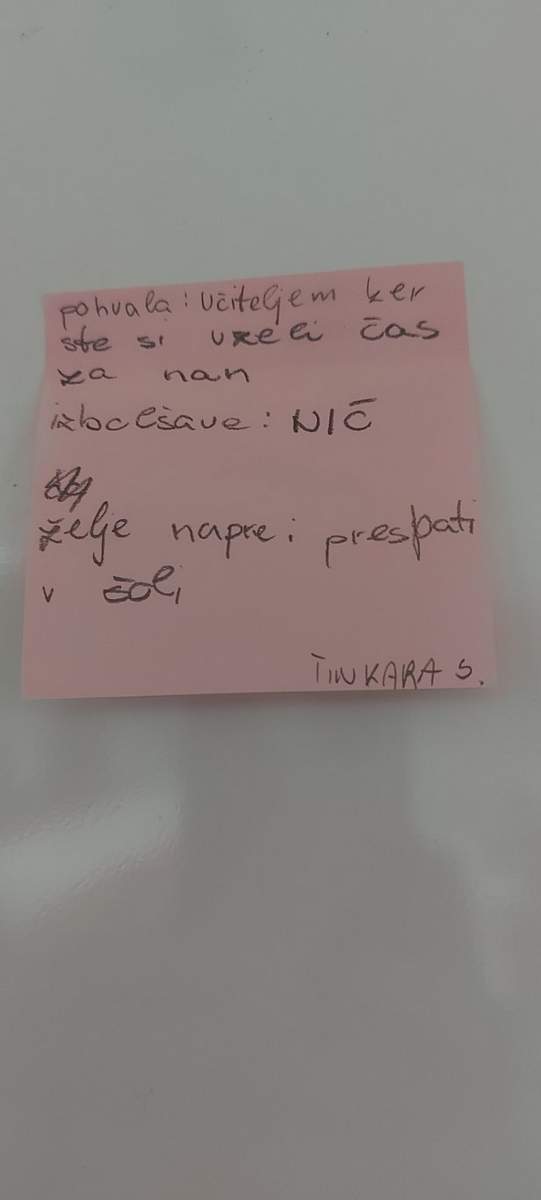 pohvala: Učiteljem ker
ste si vzeli čas
za nan
izbolšave: NIČ
želje napre: prespati
v šoli
TINKARA S.